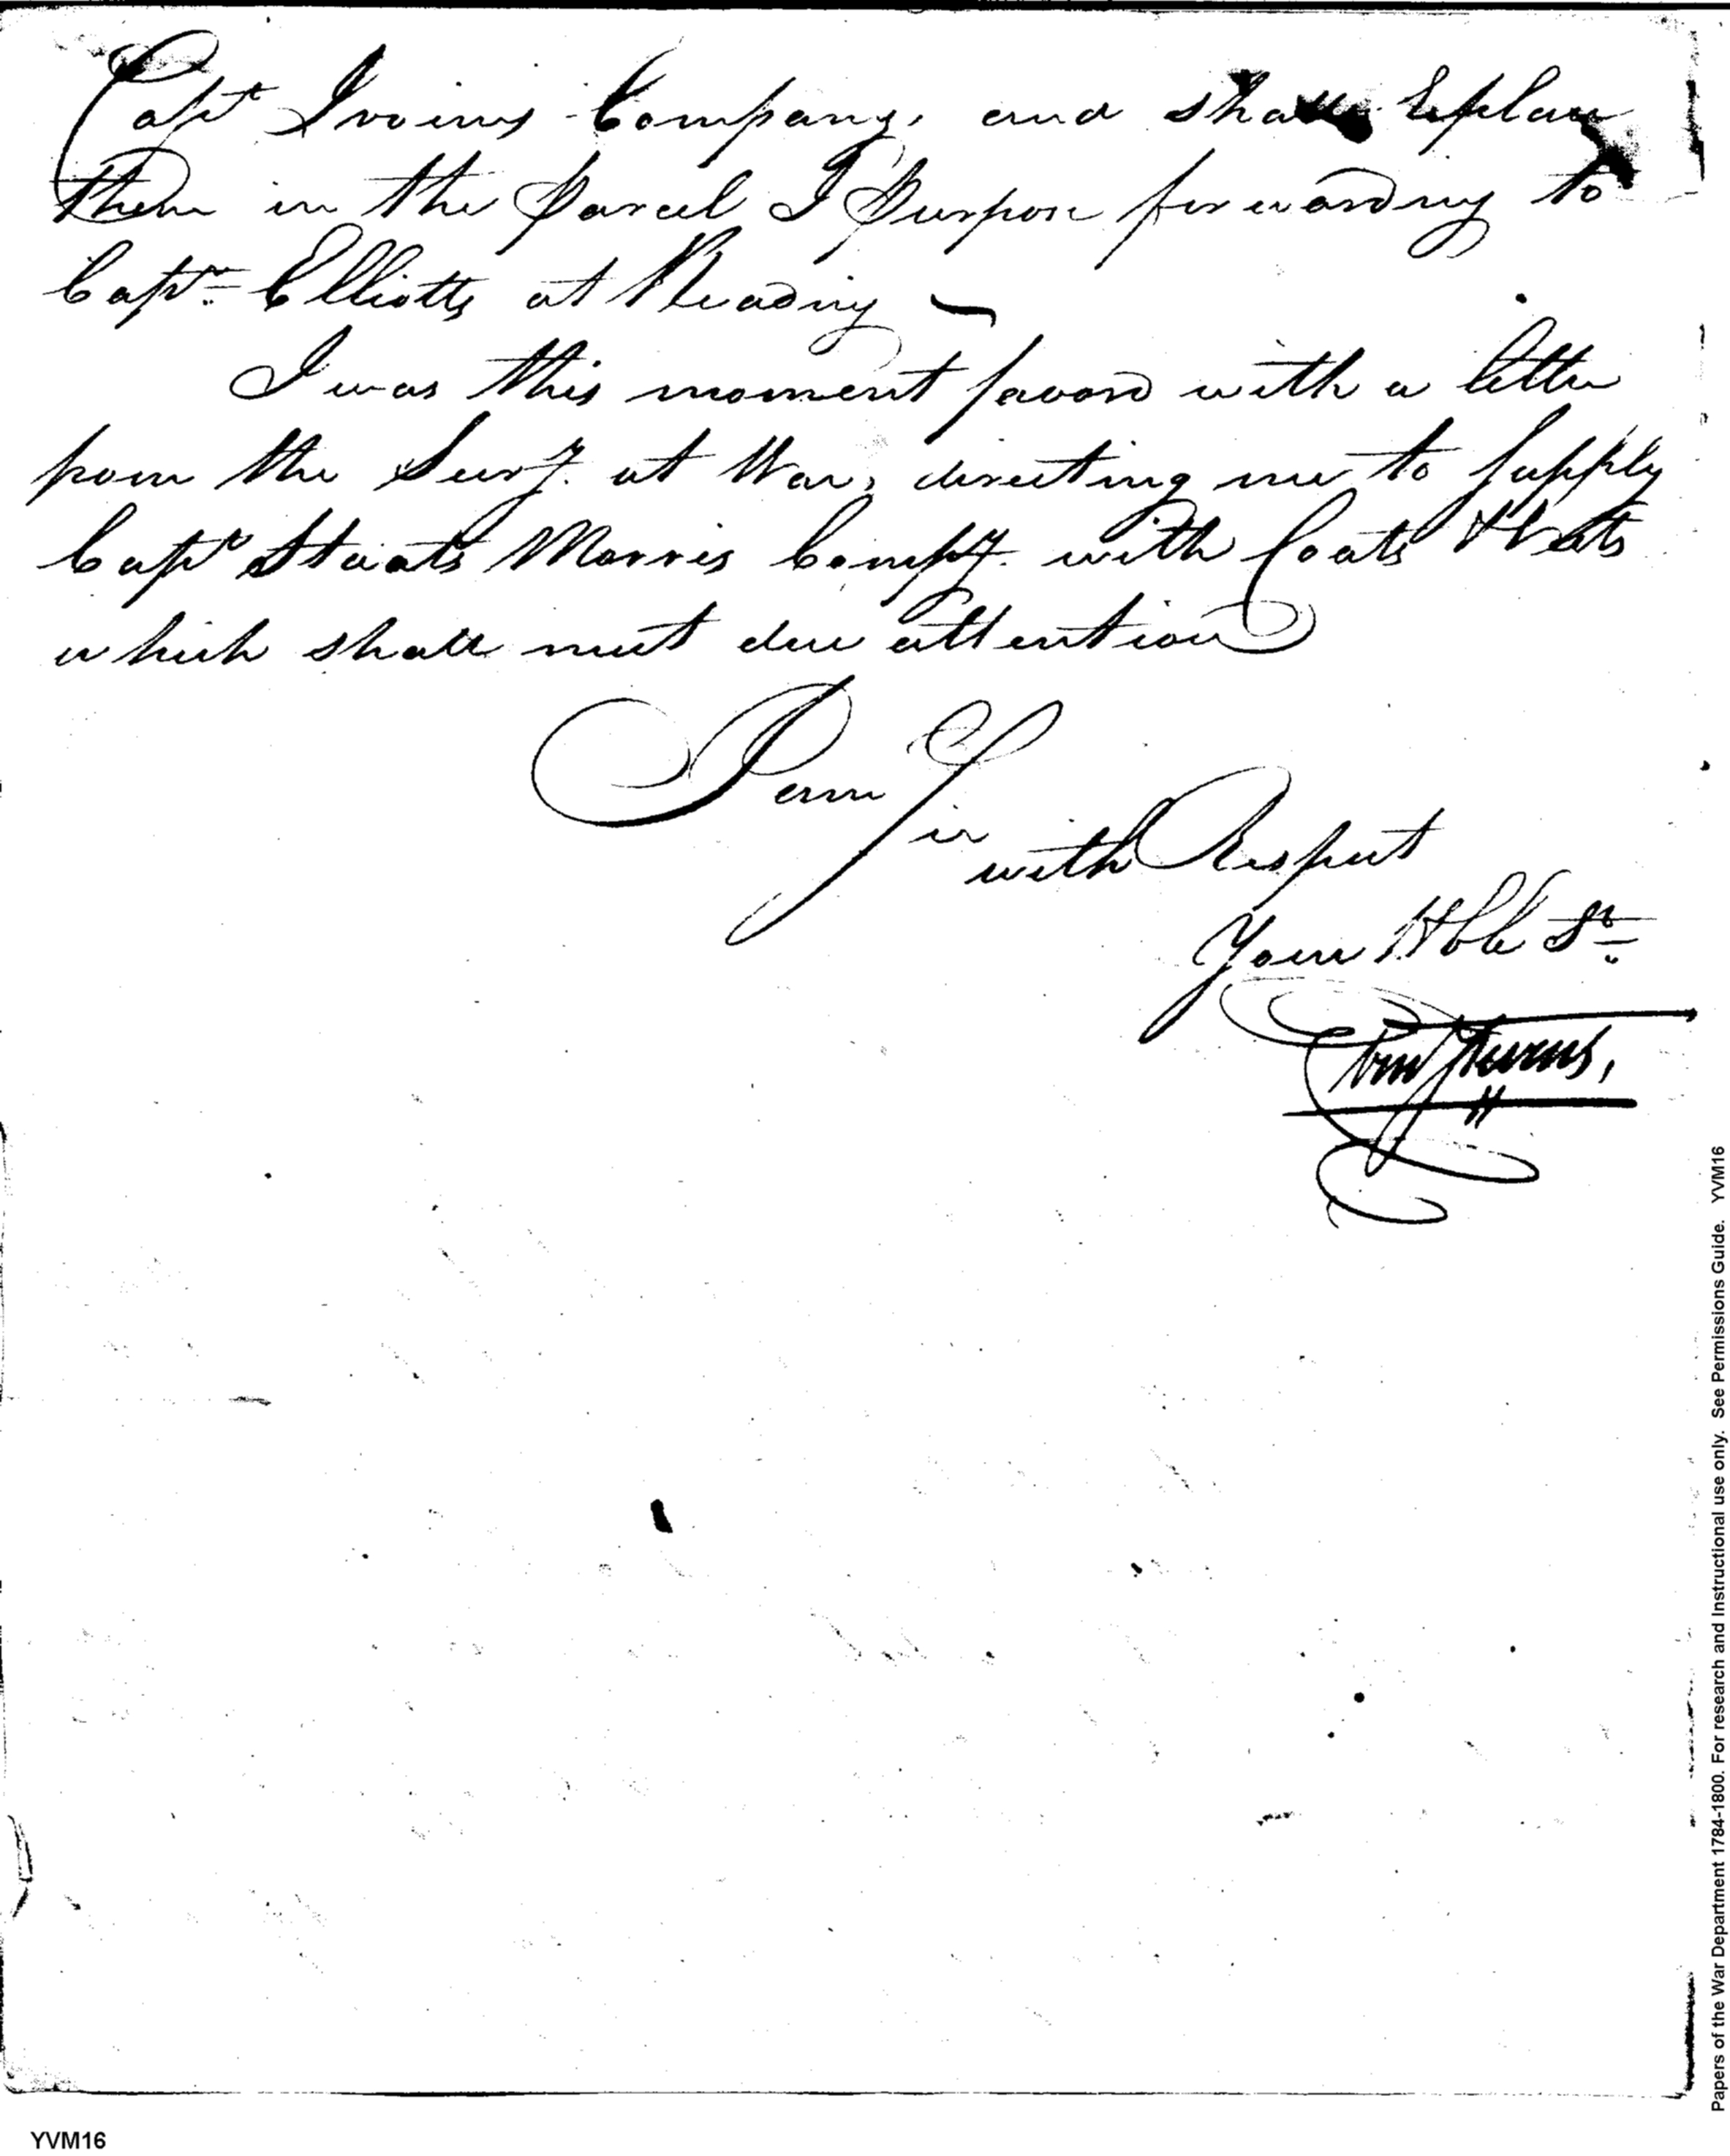 Capt Irvins Company, and shall replace
them in the Parcel I Purpose forwarding to
Capt. Elliotts at Reading
I was this moment favord with a letter
from the Secry. at War, directing me to supply
Capt Staats Morris Compy. with Coats & Hats
which shall meet due attention
I am Sir
with Respect
Your Hble St.
YVM16
Papers of the War Department 1784-1800. For research and Instructional use only. See Permissions Guide. YVM16